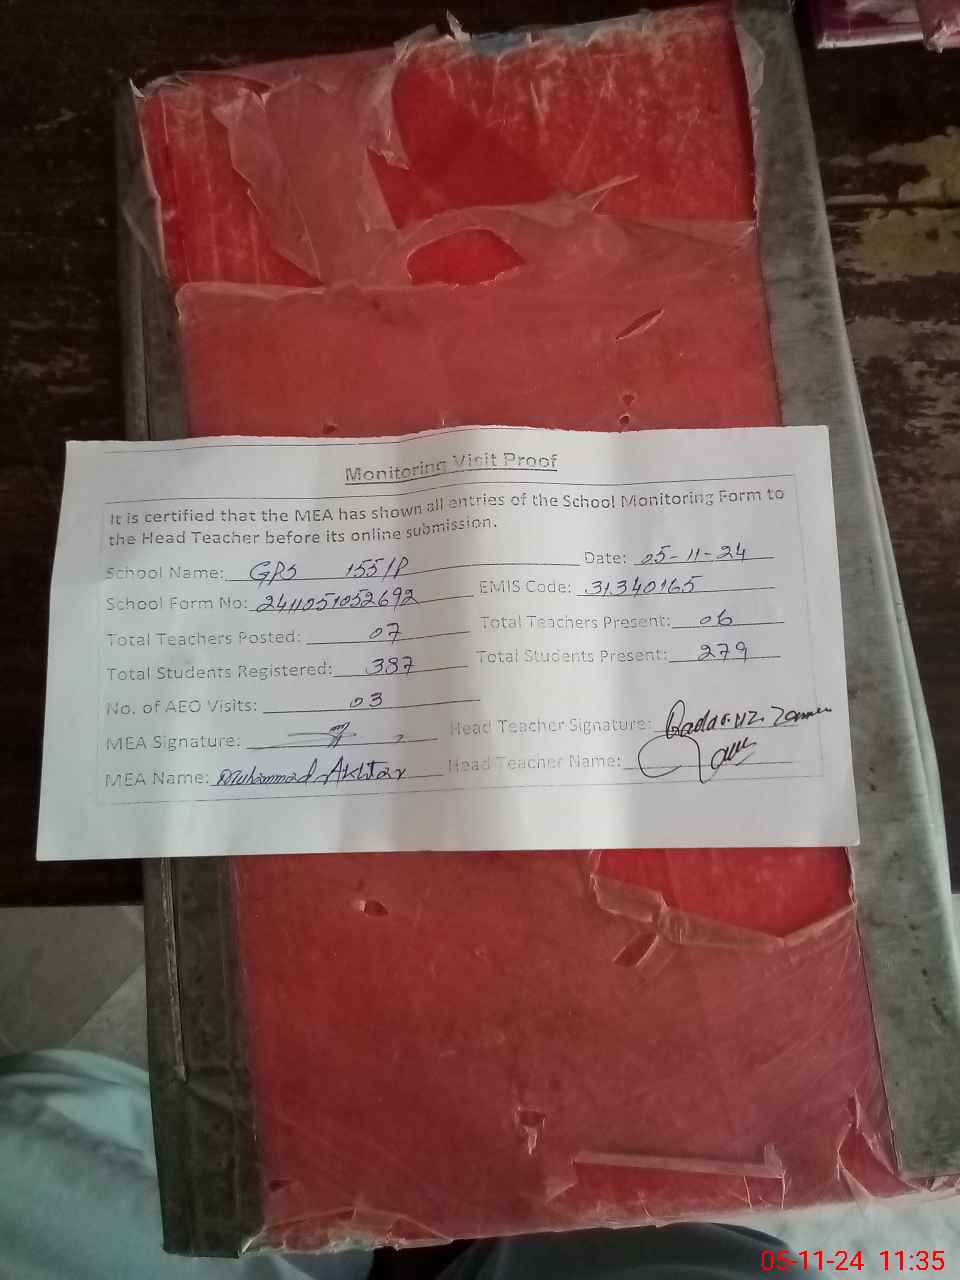 Monitoring Visit Proof
It is certified that the MEA has shown all entries of the School Monitoring Form to
the Head Teacher before its online submission.
School Name: GPS 155/P Date: 05-11-24
School Form No: 2411051052692 EMIS Code: 31340165
Total Teachers Posted: 07 Total Teachers Present: 06
Total Students Registered: 387 Total Students Present: 279
No. of AEO Visits: 03
MEA Signature: Head Teacher Signature:
MEA Name: Muhammad Akhtar Head Teacher Name:
05-11-24 11:35